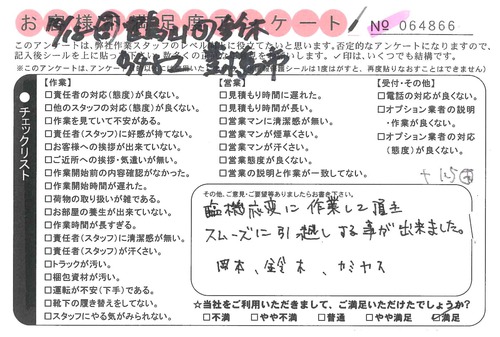 お客様満足度アンケート
№ 064866
このアンケートは、弊社作業スタッフのレベル
記入後シールを上に貼って下さい
【作業】
□責任者の対応(態度)が良くない。
□他のスタッフの対応(態度)が良くない。
□作業を見ていて不安がある。
□責任者(スタッフ)に好感が持てない。
□お客様への挨拶が出来ていない。
□ご近所への挨拶・気遣いが無い。
□作業開始前の内容確認がなかった。
□作業開始時間が遅れた。
□荷物の取り扱いが雑である。
□お部屋の養生が出来ていない。
□作業時間が長すぎる。
□責任者(スタッフ)に清潔感が無い。
□責任者(スタッフ)が汗くさい。
□トラックが汚い。
□梱包資材が汚い。
□運転が不安(下手)である。
□靴下の履き替えをしてない。
□スタッフにやる気がみられない。
【営業】
□見積もり時間に遅れた。
□見積もり時間が長い。
□営業マンに清潔感が無い。
□営業マンが煙草くさい。
□営業マンが汗くさい。
□営業態度が良くない。
□営業の説明と作業が一致してない。
【受付・その他】
□電話の対応が良くない。
□オプション業者の説明
・作業が良くない。
□オプション業者の対応
(態度)が良くない。
チェックリスト
その他、ご意見・ご要望等ありましたらお書き下さい。
臨機応変に作業して頂き
スムーズに引越しする事が出来ました。
岡本、鈴木、カミヤス
☆当社をご利用いただきまして、ご満足いただけたでしょうか?
□不満 □やや不満 □普通 □やや満足 ☑満足